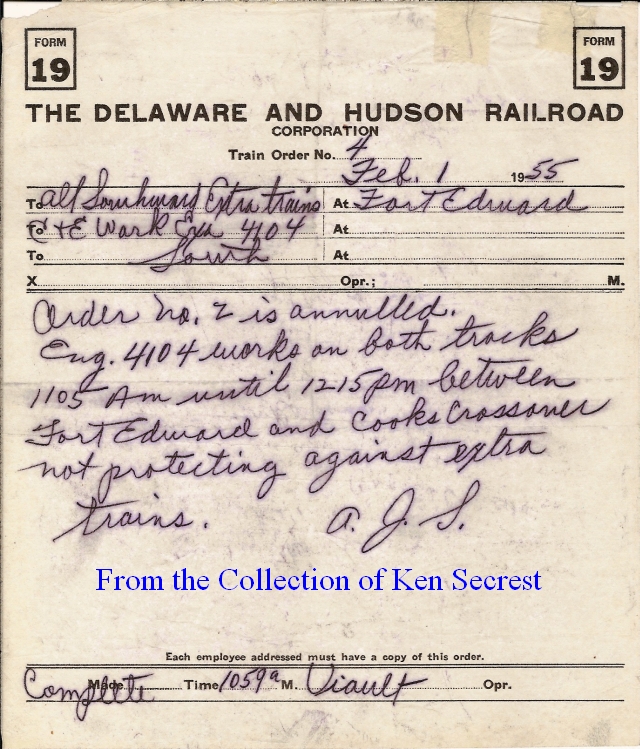 FORM 19 FORM 19
THE DELAWARE AND HUDSON RAILROAD
CORPORATION
Train Order No. 4
Feb. 1 1955
To All Southward Extra trains At Fort Edward
To C+E Work Exa 4104 At
To South At
X Opr.; M.
Order No. 2 is annulled.
Eng. 4104 works on both tracks
1105 Am until 1215 pm between
Fort Edward and Cooks Crossover
not protecting against extra
trains. A. J. S.
From the Collection of Ken Secrest
Each employee addressed must have a copy of this order.
Complete Made Time 1059 a M. Viault Opr.